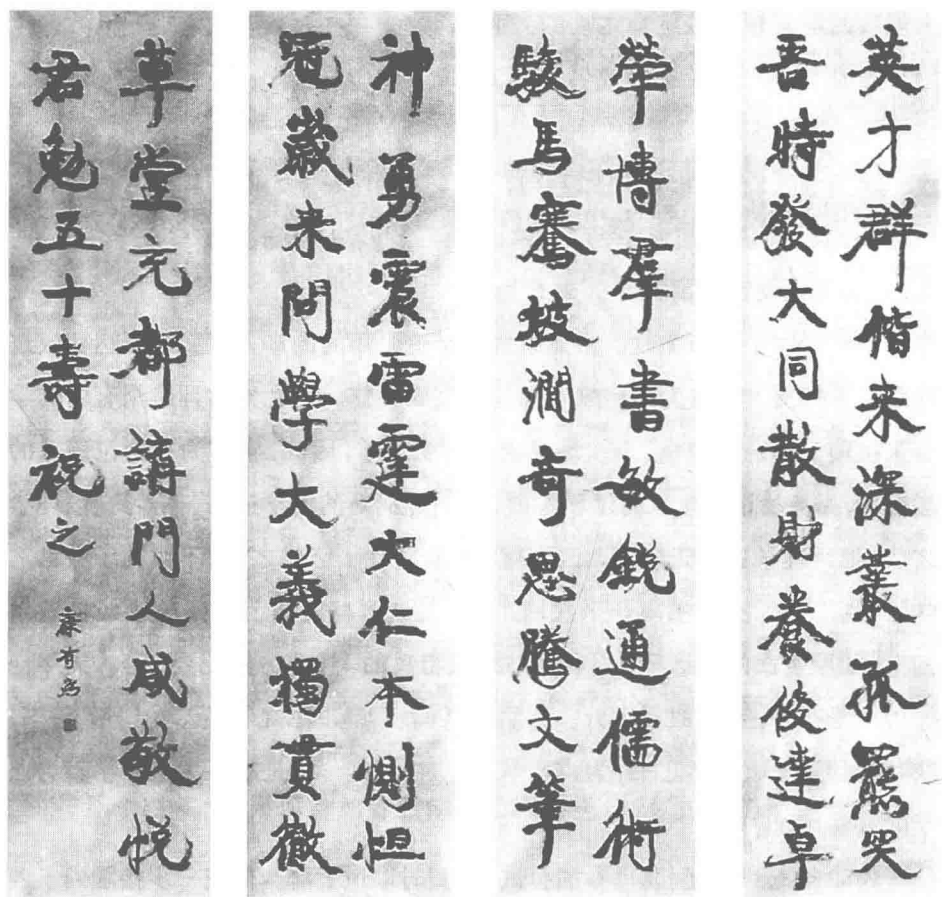 英才群偕来深叢孤羆哭
吾時發大同散財養俊達卓
犖博羣書敏銳通儒術
駿馬騫坡澗奇思騰文筆
神勇震雷霆大仁本惻怛
冠歲来問學大義獨貫徹
草堂充都講門人咸敬悦
君勉五十壽祝之
康有為